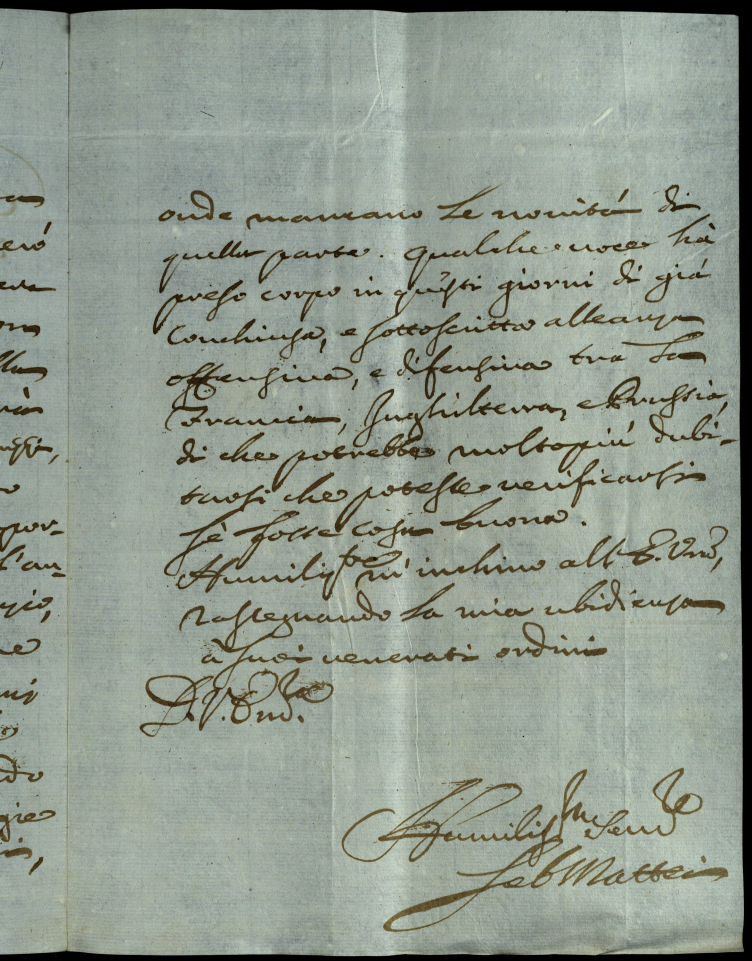 onde mancano le novità di
quella parte. Qualche voce hà
preso corpo in questi giorni di già
conchiusa, e sottoscritta alleanza
offensiva, e difensiva tra la
Francia, Inghilterra, e Prussia,
di che potrebbe molto più dubi-
tarsi che potesse verificarsi
sè fosse cosa buona.
Humiliss.te m'inchino all'E. Vra,
rassegnando la mia ubidienza
à suoi venerati ordini
D. V. Em.za
Humiliss.mo Serv.re
Seb Mattei